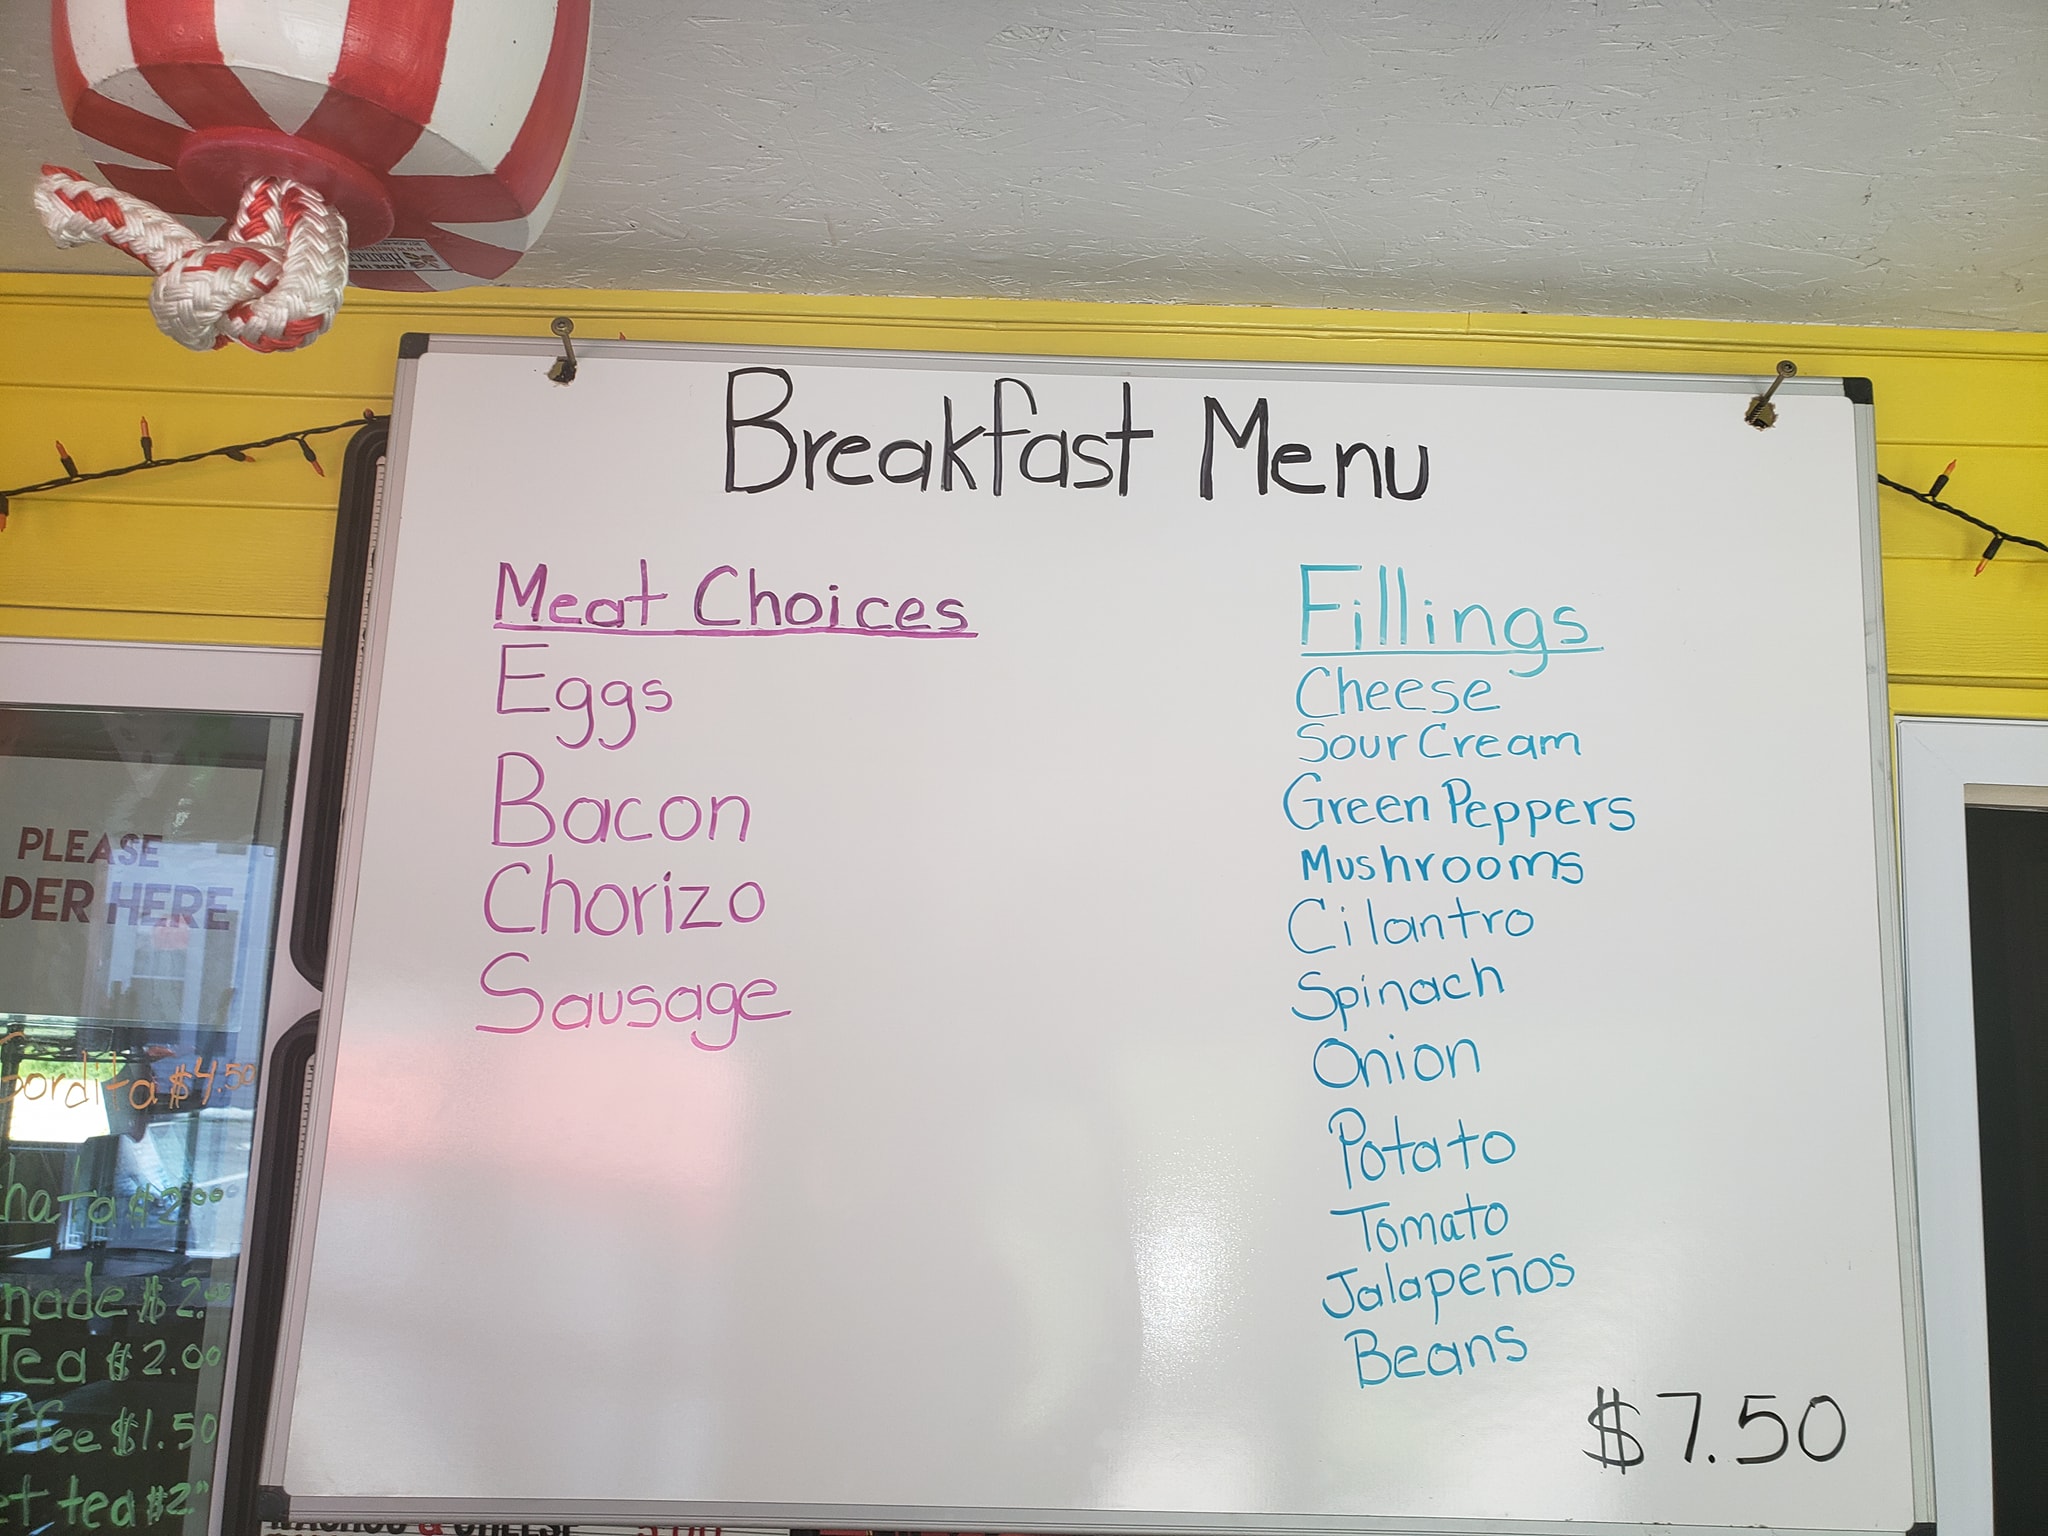 Breakfast Menu
Meat Choices
Eggs
Bacon
Chorizo
Sausage
Fillings
Cheese
Sour Cream
Green Peppers
Mushrooms
Cilantro
Spinach
Onion
Potato
Tomato
Jalapeños
Beans
$7.50
PLEASE
DER HERE
Gordita $4.50
hata $2.00
nade $2.00
Tea $2.00
ffee $1.50
et tea $2
MADE IN
HERITAGE
NACHOS & CHEESE 5.00